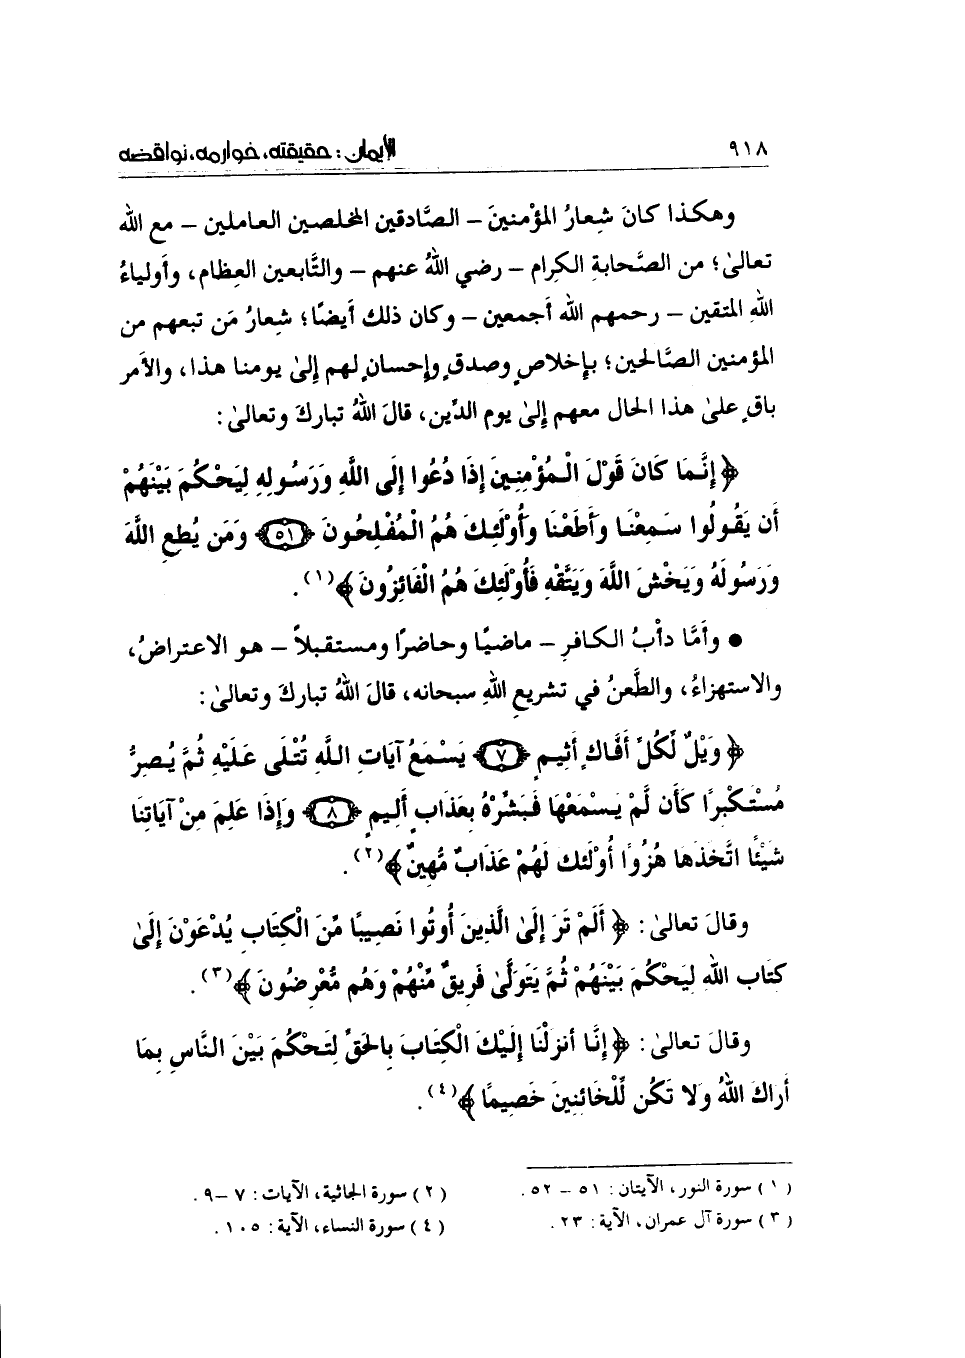 ٩١٨
الإيمان: حقيقته، خوارمه، نواقضه
وهكذا كانَ شِعارُ المؤْمنينَ – الصَّادقين المخلصين العاملين – مع الله
تعالىٰ؛ من الصَّحابةِ الكرام – رضي اللهُ عنهم – والتَّابعين العِظام، وأولياءُ
اللهِ المتقين – رحمهم الله أجمعين – وكان ذلك أيضًا؛ شِعارُ مَن تبعهم من
المؤمنين الصَّالحين؛ بإخلاصٍ وصدقٍ وإحسانٍ لهم إلىٰ يومنا هذا، والأمر
باقٍ علىٰ هذا الحال معهم إلىٰ يوم الدِّين، قالَ اللهُ تبارك وتعالىٰ:
﴿ إِنَّمَا كَانَ قَوْلَ الْمُؤْمِنِينَ إِذَا دُعُوا إِلَى اللَّهِ وَرَسُولِهِ لِيَحْكُمَ بَيْنَهُمْ
أَن يَقُولُوا سَمِعْنَا وَأَطَعْنَا وَأُوْلَئِكَ هُمُ الْمُفْلِحُونَ ﴿٥١﴾ وَمَن يُطِعِ اللَّهَ
وَرَسُولَهُ وَيَخْشَ اللَّهَ وَيَتَّقْهِ فَأُوْلَئِكَ هُمُ الْفَائِزُونَ ﴾(١).
● وأمَّا دأبُ الكافرِ – ماضيًا وحاضرًا ومستقبلاً – هو الاعتراضُ،
والاستهزاءُ، والطَّعنُ في تشريعِ اللهِ سبحانه، قالَ اللهُ تبارك وتعالىٰ:
﴿ وَيْلٌ لِّكُلِّ أَفَّاكٍ أَثِيمٍ ﴿٧﴾ يَسْمَعُ آيَاتِ اللَّهِ تُتْلَى عَلَيْهِ ثُمَّ يُصِرُّ
مُسْتَكْبِرًا كَأَن لَّمْ يَسْمَعْهَا فَبَشِّرْهُ بِعَذَابٍ أَلِيمٍ ﴿٨﴾ وَإِذَا عَلِمَ مِنْ آيَاتِنَا
شَيْئًا اتَّخَذَها هُزُوًا أُوْلَئك لَهُمْ عَذَابٌ مُّهِينٌ ﴾(٢).
وقالَ تعالىٰ: ﴿ أَلَمْ تَرَ إِلَىٰ الَّذِينَ أُوتُوا نَصِيبًا مِّنَ الْكِتَابِ يُدْعَوْنَ إِلَىٰ
كِتَابِ اللهِ لِيَحْكُمَ بَيْنَهُمْ ثُمَّ يَتَوَلَّىٰ فَرِيقٌ مِّنْهُمْ وَهُم مُّعْرِضُونَ ﴾(٣).
وقالَ تعالىٰ: ﴿ إِنَّا أنزلْنَا إِلَيْكَ الْكِتَابَ بِالحَقِّ لِتَحْكُمَ بَيْنَ النَّاسِ بِمَا
أَرَاكَ اللهُ وَلا تَكُن لِّلْخَائِنِينَ خَصِيمًا ﴾(٤).
(١) سورة النور، الآيتان: ٥١ – ٥٢.
(٢) سورة الجاثية، الآيات: ٧ –٩.
(٣) سورة آل عمران، الآية: ٢٣.
(٤) سورة النساء، الآية: ١٠٥.